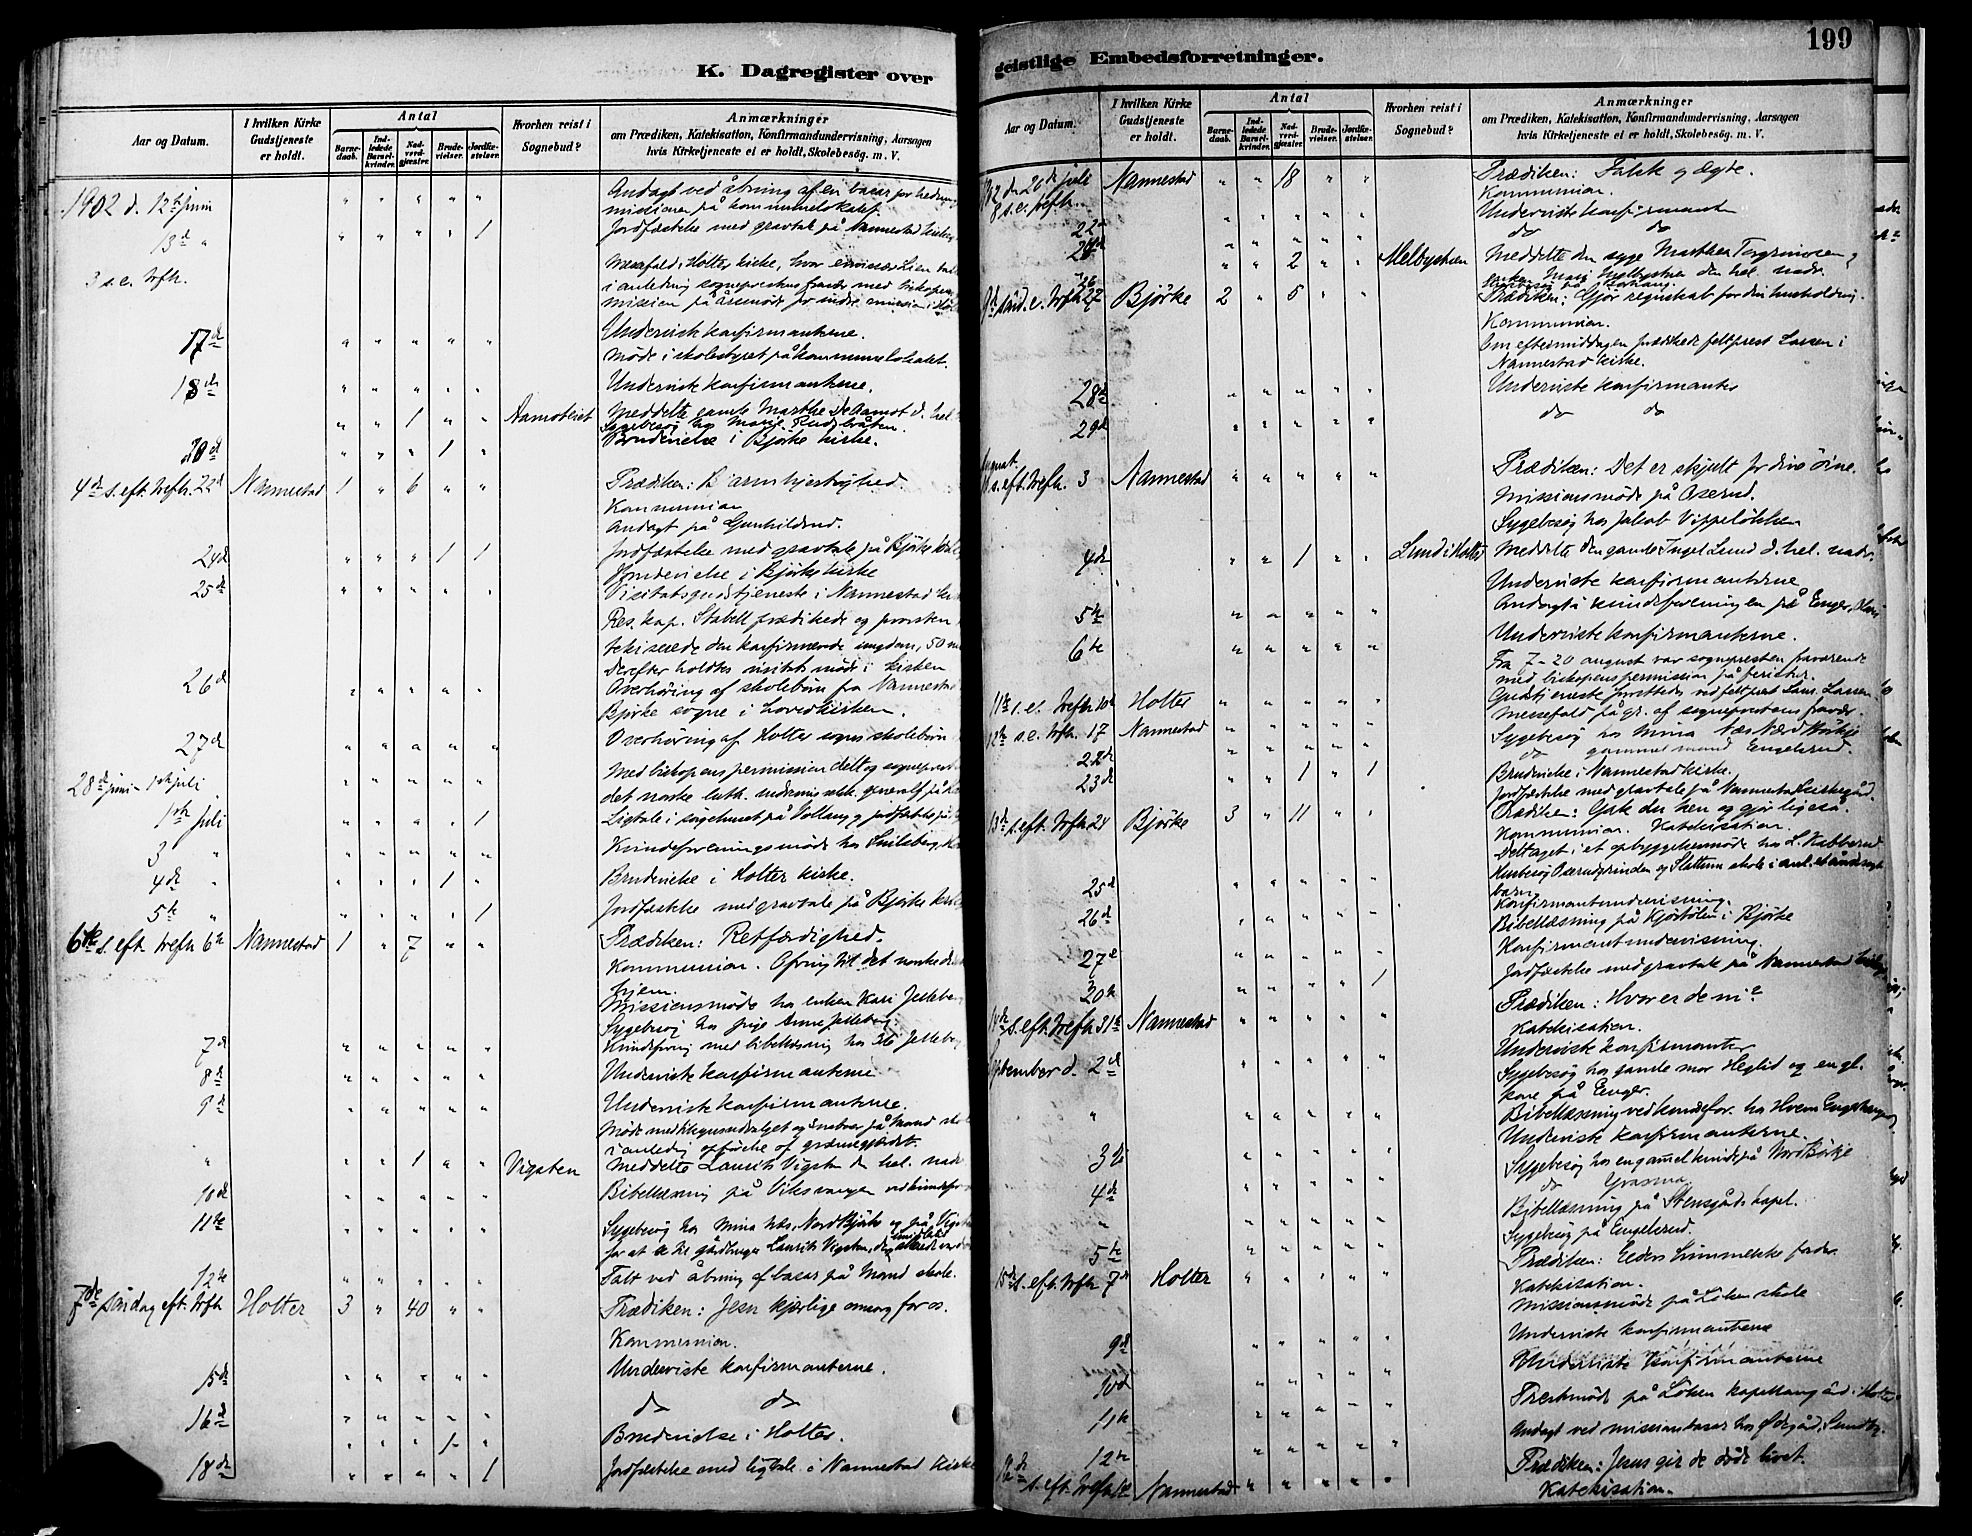 K. Dagregister over
Aar og Datum.
I hvilken Kirke Gudstjeneste er holdt.
Antal
Barnedaab.
Indledede Barselkvinder.
Nadverdgjæster.
Brudevielser.
Jordfæstelser.
Hvorhen reist i Sognebud?
Anmærkninger
om Prædiken, Katekisation, Konfirmandundervisning, Aarsagen
hvis Kirketjeneste ei er holdt, Skolebesög. m. V.
1902 d. 12te juni " " " " " Andagt ved åbning af en basar for hedninge
missionen på kommunelokalet.
13de " " " " " 1 Jordfæstelse med gravtale på Nannestad
3 s. e. trefh. Messefald i Holter kirke, hvor
i anledning sogneprestens med biskopens
mission på årsmøde for indre mission i
17de " " " " " Underviste konfirmanterne.
Møde i skolestyret på kommunelokalet.
18de " " " " " Underviste konfirmanterne.
" " 1 " " Aamoteiet Meddelte gamle Marthe Aamot d. hel.
Sygebesøg hos Marie
20de " " " 1 " Brudevielse i Bjørke kirke.
4de s. eft. trefh. 22de Nannestad 1 " 6 " " Prædiken: Barmhjertighed.
Kommunion
Andagt på Gunhildrud.
24de " " " 1 1 Jordfæstelse med gravtale på Bjørke
Brudevielse i Bjørke kirke
25de " " " " " Visitatsgudstjeneste i Nannestad
Res. kap. Stabell prædikede og provsten
den konfirmerede ungdom, 50
Derefter holdtes visitatsmøde i kirken
26de " " " " " Overhøring af skolebørn fra Nannestad
Bjørke sogne i hovedkirken.
27de " " " " " Overhøring af Holter sogns skolebørn
28de juni - 1ste juli " " " " " Med biskopens permission deltog sognepresten
det norske luth. generalf. på
1ste juli " " " " 1 Ligtale i sørgehuset på Vollaug og jordfæstelse på
3 " " " " " " Kvindeforeningsmøde hos
4de " " " " 1 " Brudevielse i Holter kirke.
5te " " " " " 1 Jordfæstelse med gravtale på Bjørke
6te s. eft. trefh. 6te Nannestad 1 " 7 " " Prædiken: Retfærdighed.
Kommunion. Ofring til det norske
hjem.
Missionsmøde hos enken Kari
Sygebesøg hos pige Anne
7de " " " " " med bibellæsning hos
8de " " " " " Underviste konfirmanterne
9de " " " " " Underviste konfirmanterne.
Møde med
i anledning
" " " 1 " " Vigsten Meddelte Laurits Vigsten den hel. nadv
10de " " " " " Bibellæsning på Viksvangen ved
11te " " " " " Sygebesøg hos Mina Næs, Nord Bjørke og på Vigsten
for at Laurits Vigsten,
12te " " " " " Talt ved åbning af basar på Maud skole.
7de søndag eft. trefh Holter 3 " 40 " " Prædiken: Jesu kjærlige omsorg for os.
Kommunion.
15de " " " " " Underviste konfirmanterne.
16de " " " " " do do
" " " 1 " Brudevielse i Holter.
18de " " " " 1 Jordfæstelse med ligtale i Nannestad kirke
geistlige Embedsforretninger.
199
Aar og Datum.
I hvilken Kirke Gudstjeneste er holdt.
Antal
Barnedaab.
Indledede Barselkvinder.
Nadverdgjæster.
Brudevielser.
Jordfæstelser.
Hvorhen reist i Sognebud?
Anmærkninger
om Prædiken, Katekisation, Konfirmandundervisning, Aarsagen
hvis Kirketjeneste ei er holdt, Skolebesög. m. V.
1902 d. 20de juli Nannestad " " 18 " " Prædiken: Falsk og ægte.
8 s. e. trefh. Kommunion.
22de " " " " " Underviste konfirmanter
" " " " " do do
" " 2 " " Melbystuen Meddelte den syge Mathea Torgrimsen
enken Mari Melbystuen den hel. nadv.
9de sönd. e. trefh 27 Bjørke 2 " 5 " " Prædiken: Gjør regnskab for din husholdning.
Kommunion.
Om eftermiddagen prædikede feltprest Larsen i
Nannestad kirke.
28de " " " " " Underviste konfirmanter
29de " " " " " do do
August
s. eft. trefh. 3 Nannestad " " " " " Prædiken: Det er skjult for dine öine.
Missionsmöde på Åserud.
Sygebesøg hos Jakob Vippeløkken
4de " " 1 " " Lund i Holter Meddelte den gamle Ingel Lund d. hel. nadv.
Underviste konfirmanterne
5te " " " " " Andagt i kvindeforeningen på Enger,
6te " " " " " Underviste konfirmanterne.
Fra 7-20 august var sognepresten fraværende
med biskopens permission på ferietur.
11te s. e. trefh 10de Holter " " " " " Gudstjeneste forrettedes ved feltprest Larsen
12te s. e. trefh. 17 Nannestad " " " " " Messefald på gr. af sogneprestens fravær.
22de " " " " " Sygebesøg hos Mina Næs Nord Börkje
do gammel mand Engelsrud.
23de " " 1 " 1 Brudevielse i Nannestad kirke.
Jordfæstelse med gravtale på Nannestad kirkegård.
13de s. eft. trefh 24 Bjørke 3 " 11 " " Prædiken: Gak du hen og gjør ligeså.
Kommunion. Katekisation.
Deltaget i et opbyggelsesmøde hos L. Kabberud
Husbesøg Åserudgrinden og Slattum skole i anl. et åndssvagt
barn
25de " " " " " Konfirmantundervisning.
26de " " " " " Bibellæsning på Kjøstølen i Bjørke
27de " " " " " Konfirmantundervisning.
30te " " " " 1 Jordfæstelse med gravtale på Nannestad
14de s. eft. trefh 31te Nannestad " " " " " Prædiken: Hvor er de ni?
Katekisation.
September d. 2de " " " " " Underviste konfirmanter
Sygebesøg hos gamle mor Heglid og en gl.
kone på Enger.
" " " " " " Bibellæsning ved kvindefor. hos Hovem
3de " " " " " Underviste konfirmanterne.
4de " " " " " Sygebesøg hos en gammel kvinde på Nord Börkje
do Grasmo
" " " " " " Bibellæsning på Stensgård kapel.
5te " " " " " Sygebesøg på Engelsrud.
15de s. eft. trefh 7de Holter " " " " " Prædiken: Eders himmelske fader
Katekisation.
Missionsmøde på Löken skole
9de " " " " " Underviste konfirmanterne
10de " " " " " Underviste konfirmanterne
11te " " " " " Prestmøde på Löken kapellangård i Holter
12te " " " " " Andagt ved missionsbasar hos
s. eft. trefh Nannestad " " " " " Prædiken: Jesus gir de døde livet.
Katekisation.